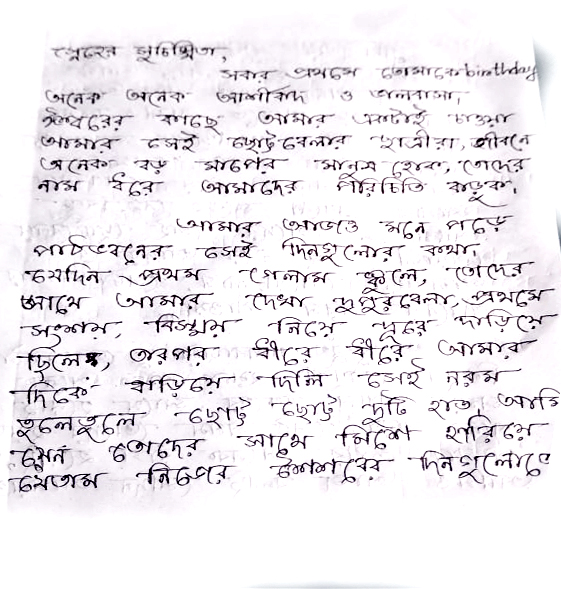 স্নেহের সুচিস্মিতা,
সবার প্রথমে তোমাকে birthday
অনেক অনেক আশীর্বাদ ও ভালবাসা,
ঈশ্বরের কাছে আমার একটাই চাওয়া
আমার সেই ছোট্টবেলার ছাত্রীরা, জীবনে
অনেক বড় মাপের মানুষ হোক, তোদের
নাম ধরে আমাদের পরিচিতি বাড়ুক,
আমার আজও মনে পড়ে
পাঠভবনের সেই দিনগুলোর কথা,
যেদিন প্রথম গেলাম স্কুলে, তোদের
সাথে আমার দেখা দুপুরবেলা, প্রথমে
সংশয়, বিস্ময় নিয়ে দূরে দাড়িয়ে
ছিলে, তারপর ধীরে ধীরে আমার
দিকে বাড়িয়ে দিলি সেই নরম
তুলেতুলে ছোট্ট ছোট্ট দুটি হাত, আমি
যেন তোদের সাথে মিশে হারিয়ে
যেতাম নিজের শৈশবের দিনগুলোতে